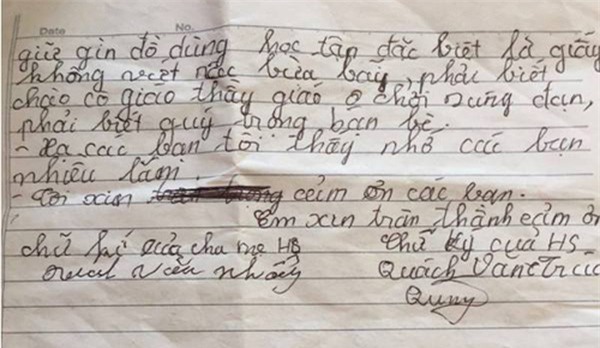 Date No.
giữ gìn đồ dùng học tập đặc biệt là giấy
không viết bừa bãy, phải biết
chào cô giáo thầy giáo chơi súng đạn,
phải biết quý trọng bạn bè.
- Xa các bạn tôi thấy nhớ các bạn
nhiều lắm.
- Tôi xin cảm ơn các bạn.
Em xin trân thành cảm ơn
chữ ký của cha mẹ HS Chữ ký của HS
Quách